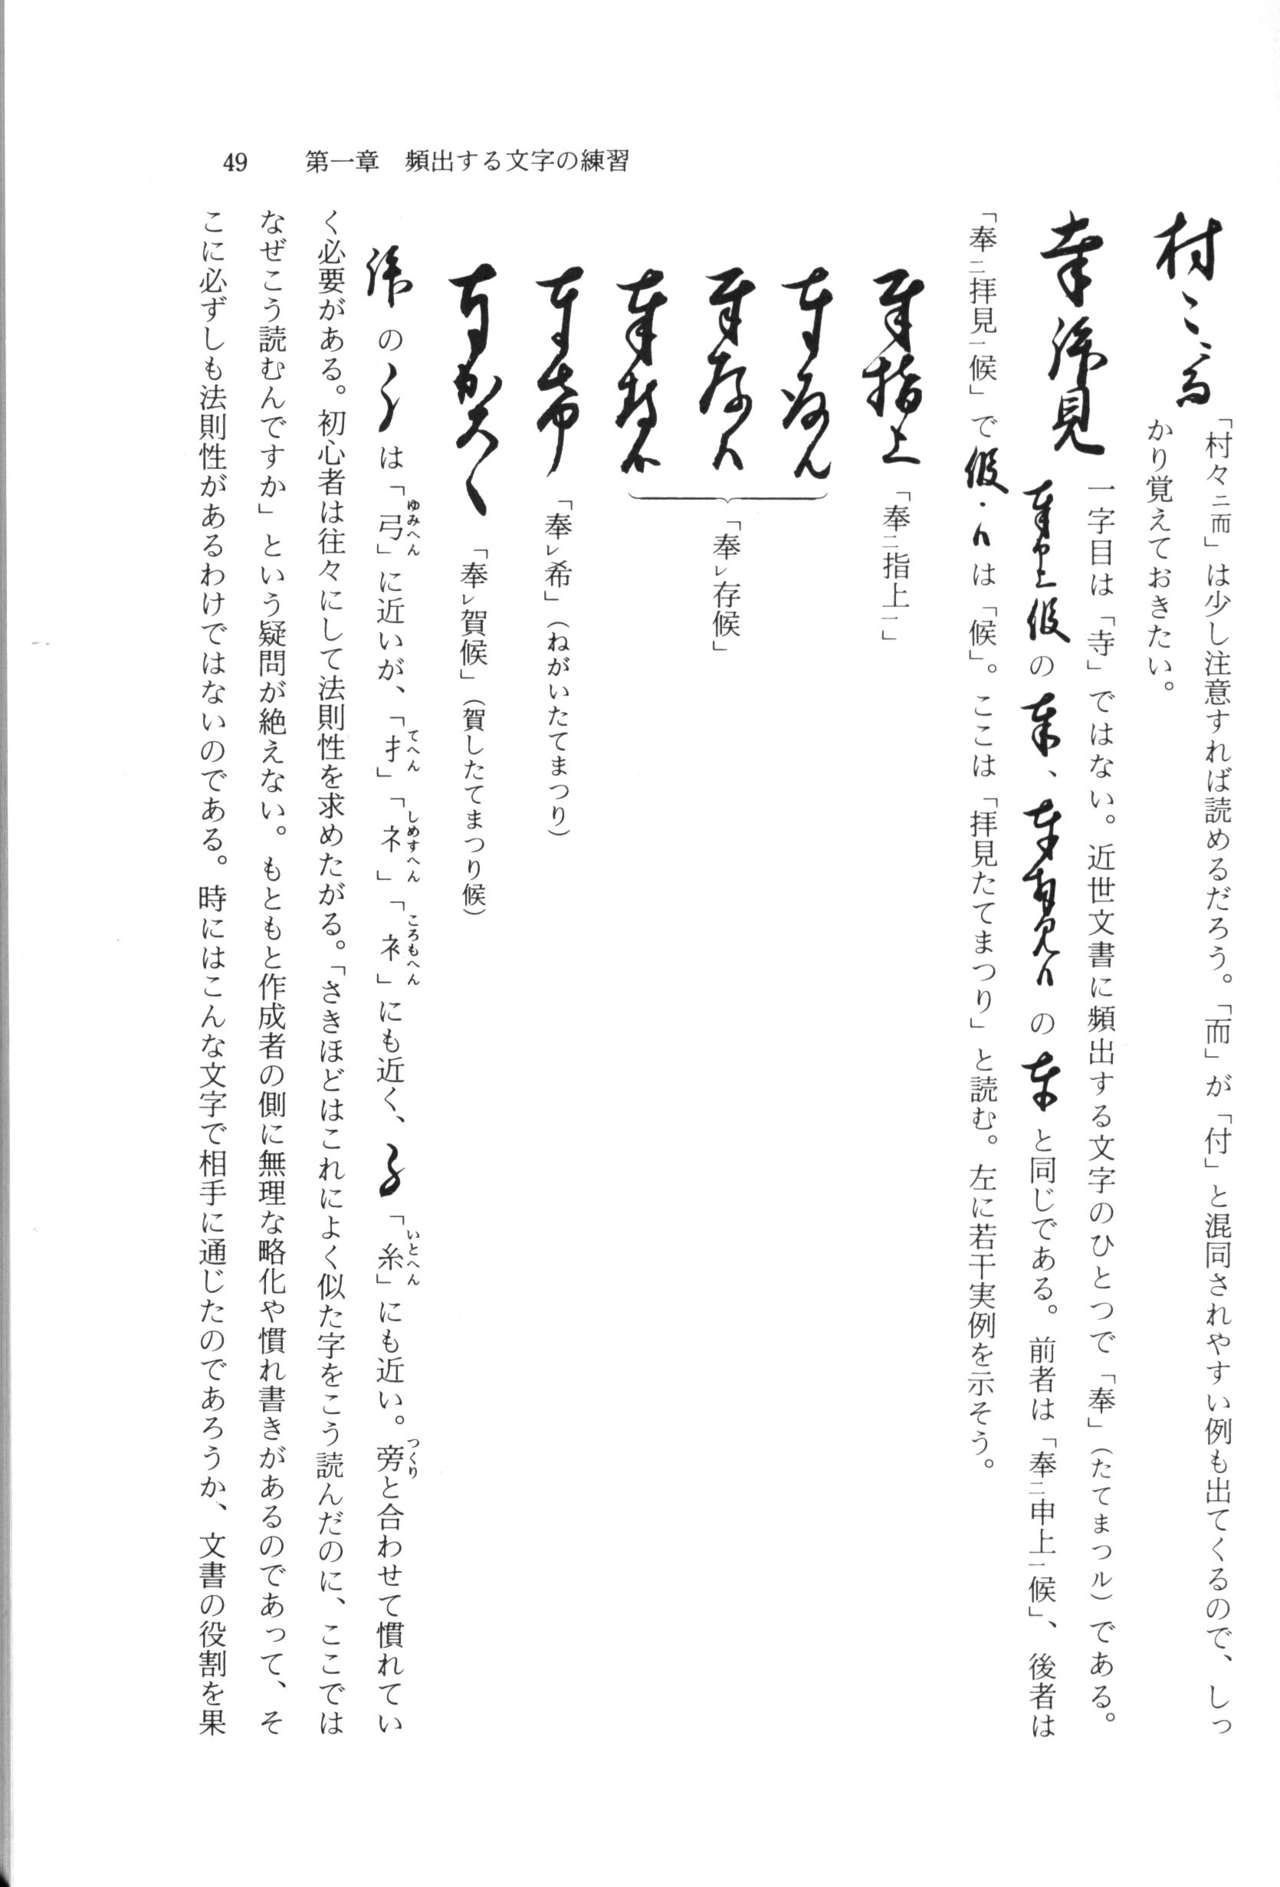 49 第一章 頻出する文字の練習
「村々ニ而」は少し注意すれば読めるだろう。「而」が「付」と混同されやすい例も出てくるので、しっ
かり覚えておきたい。
一字目は「寺」ではない。近世文書に頻出する文字のひとつで「奉」(たてまつル)である。
の、のと同じである。前者は「奉ニ申上一候」、後者は
「奉ニ拝見一候」で・は「候」。ここは「拝見たてまつり」と読む。左に若干実例を示そう。
「奉ニ指上一」
「奉レ存候」
「奉レ希」(ねがいたてまつり)
「奉レ賀候」(賀したてまつり候)
のは「弓」に近いが、「扌」「ネ」「衤」にも近く、「糸」にも近い。旁と合わせて慣れてい
ゆみへん てへん しめすへん ころもへん いとへん つくり
く必要がある。初心者は往々にして法則性を求めたがる。「さきほどはこれによく似た字をこう読んだのに、ここでは
なぜこう読むんですか」という疑問が絶えない。もともと作成者の側に無理な略化や慣れ書きがあるのであって、そ
こに必ずしも法則性があるわけではないのである。時にはこんな文字で相手に通じたのであろうか、文書の役割を果